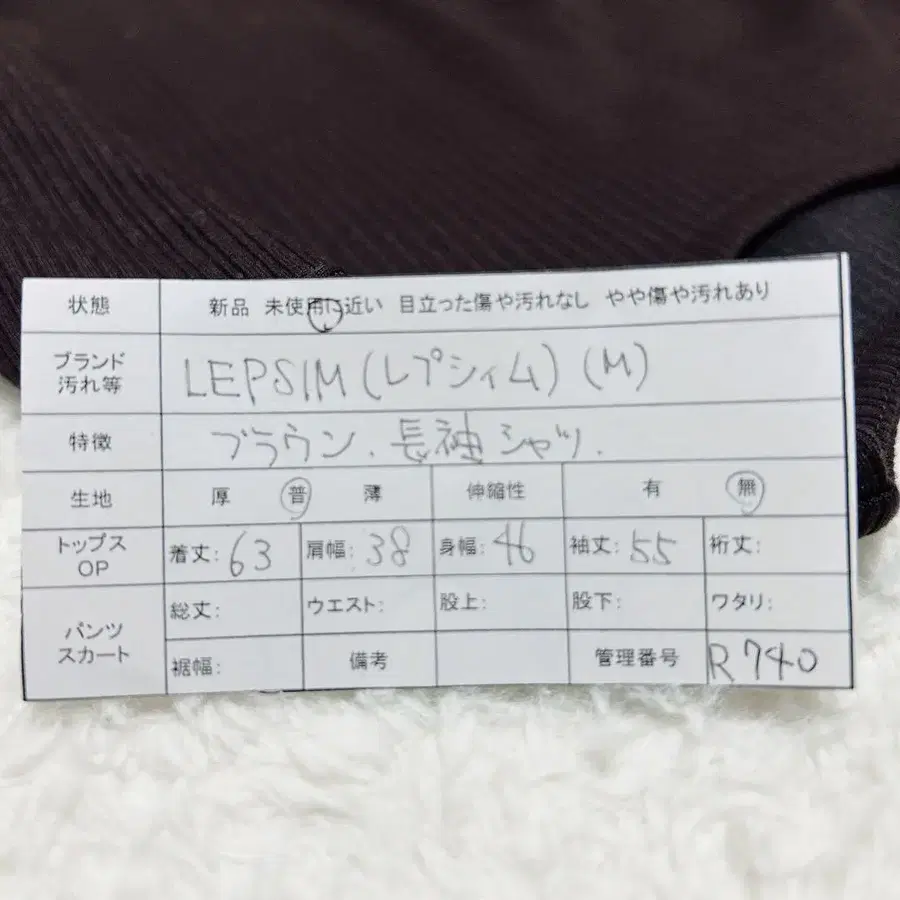 状態 新品 未使用に近い 目立った傷や汚れなし やや傷や汚れあり
ブランド
汚れ等 LEPSIM(レプシィム)(M)
特徴 ブラウン、長袖シャツ.
生地 厚 普 薄 伸縮性 有 無
トップス
OP 着丈:63 肩幅:38 身幅:46 袖丈:55 裄丈:
パンツ
スカート 総丈: ウエスト: 股上: 股下: ワタリ:
裾幅: 備考 管理番号 R740